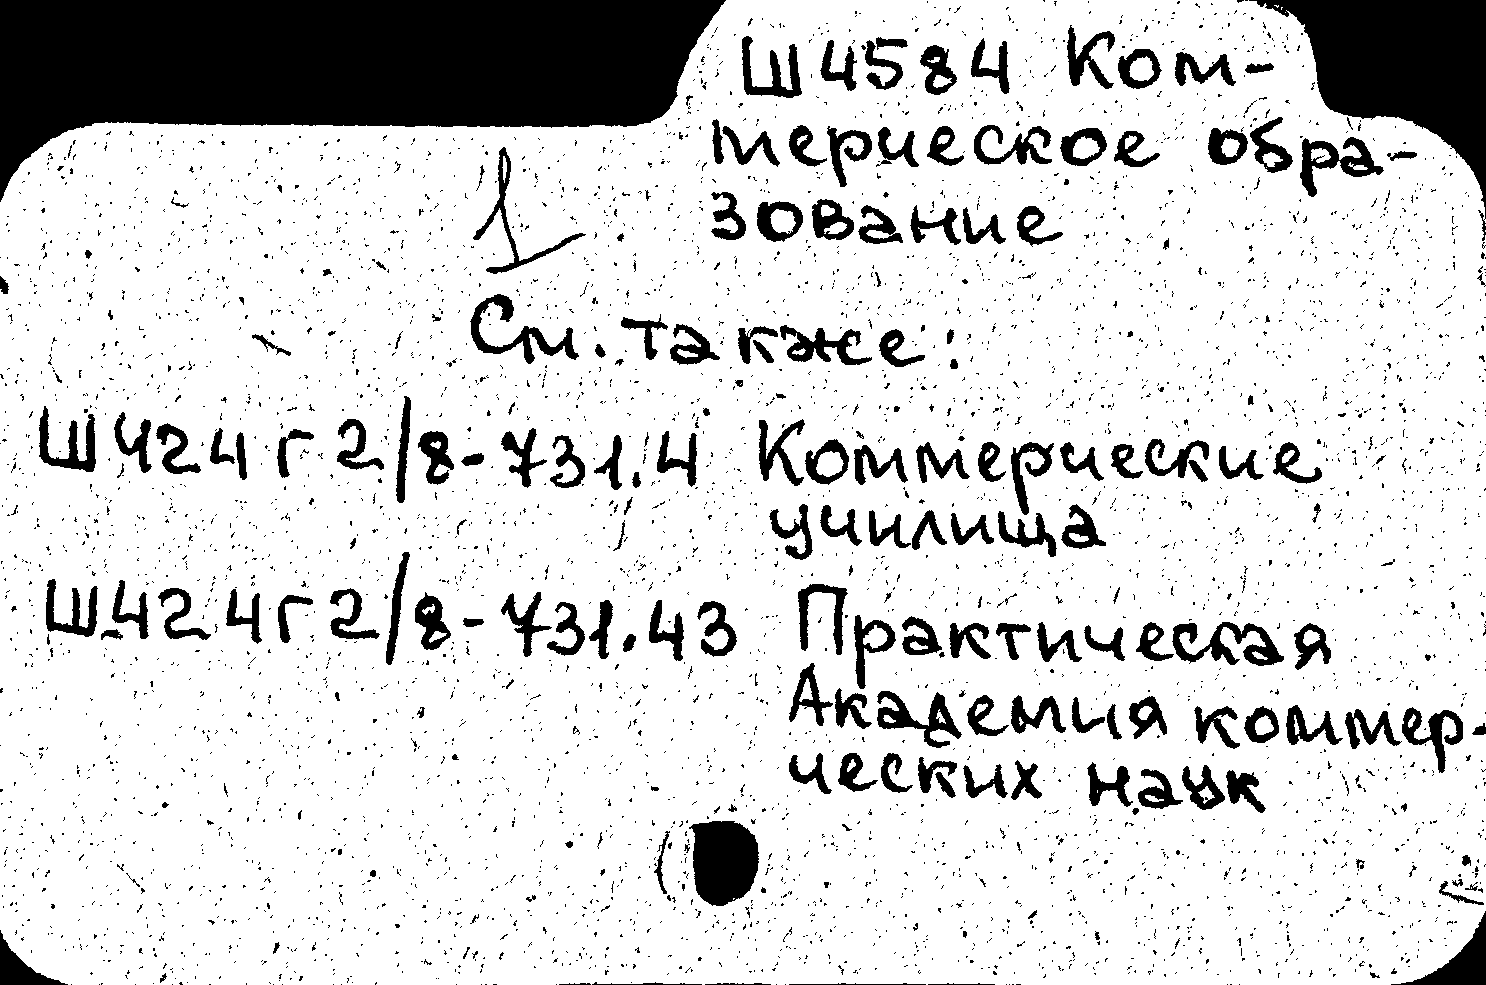 Ш4584 Ком-
мерческое обра-
зование
1
См. также:
Ш424г2/8-731.4 Коммерческие
училища
Ш424г2/8-731.43 Практическая
Академия коммер-
ческих наук